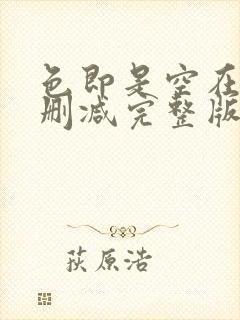 色即是空在
删减完整版
荻原浩